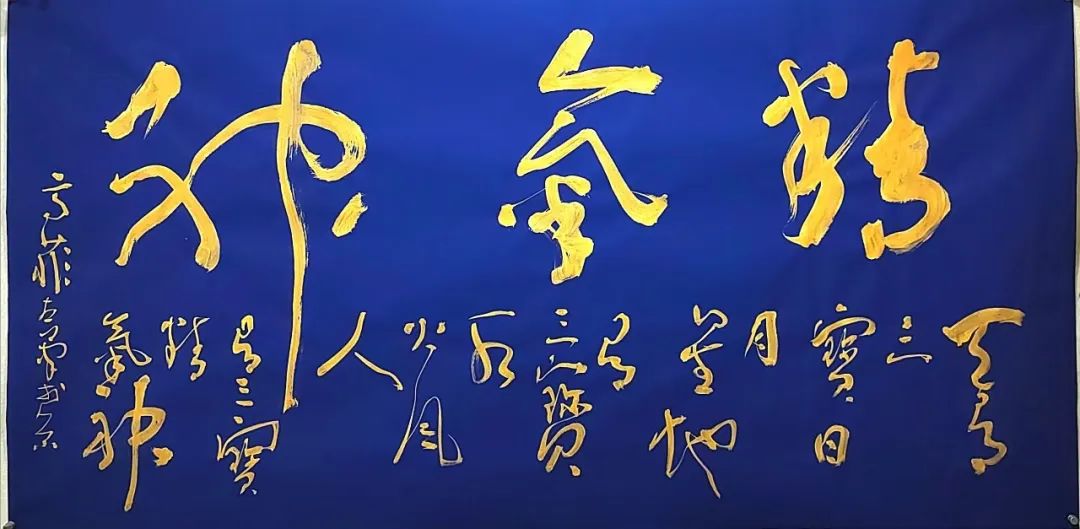 精氣神
天有
三
寶日
月
星地
有
三寶
水
火風
人
有三寶
精
氣神
高菲